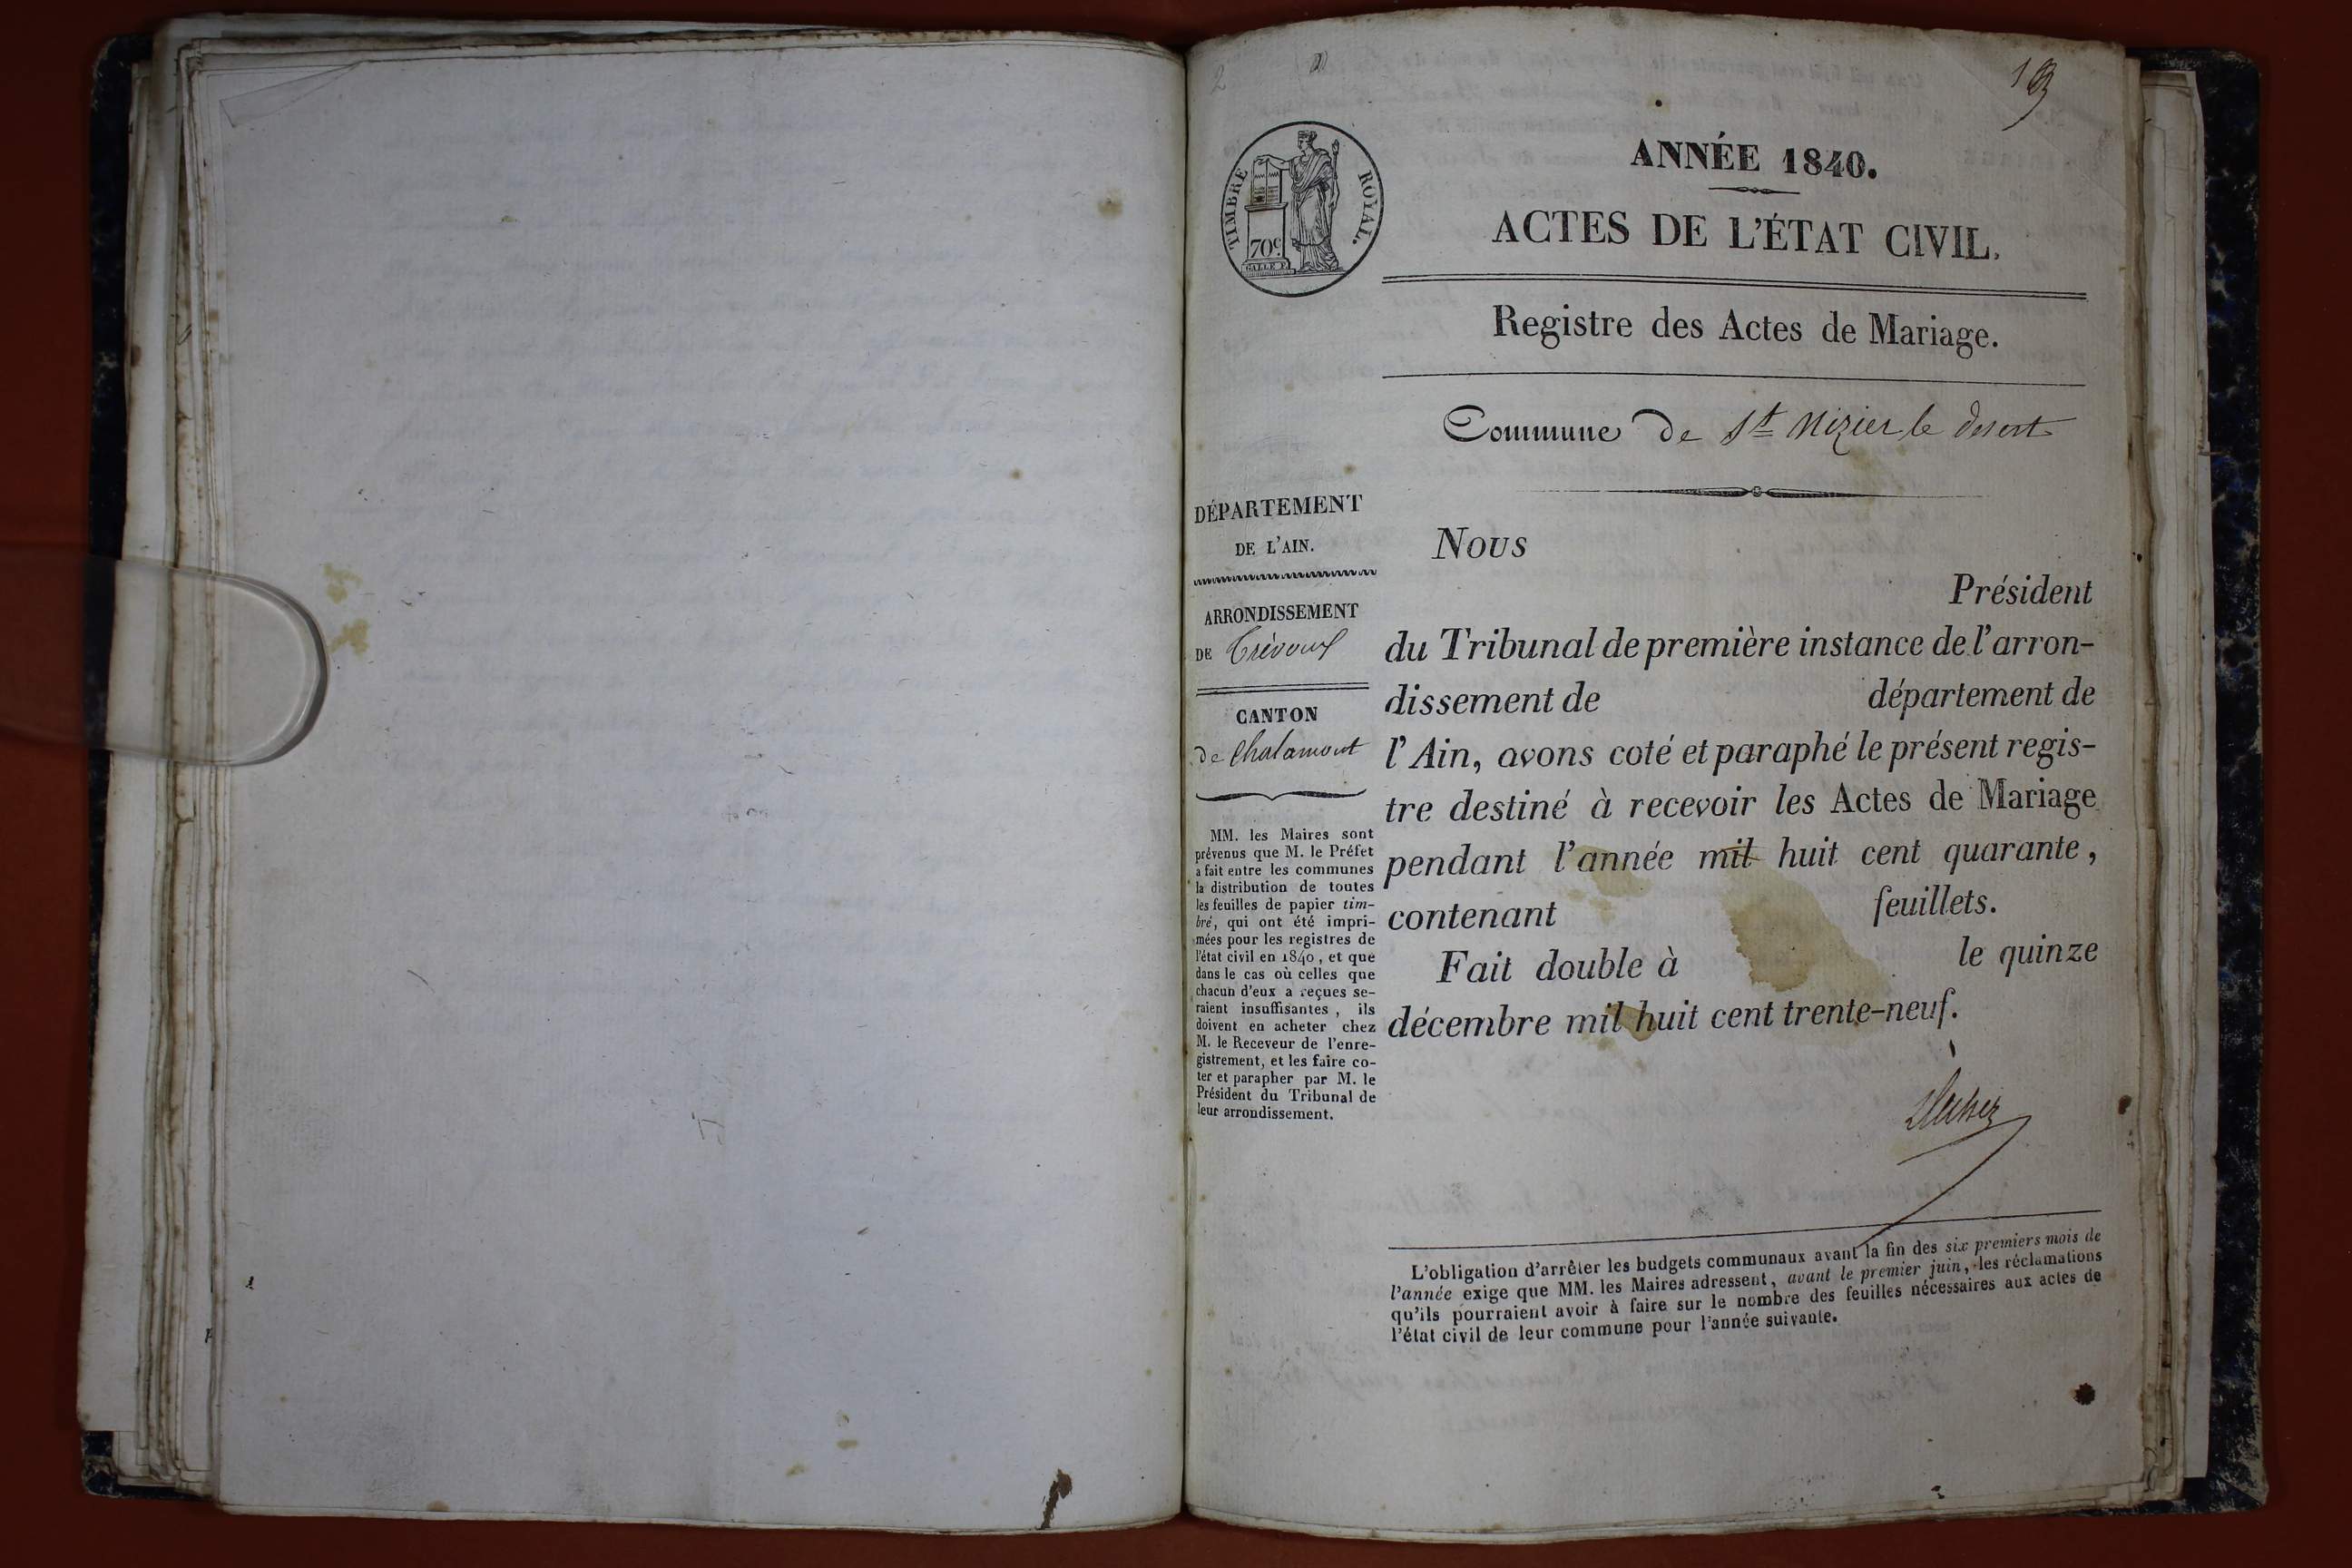 TIMBRE ROYAL.
70c.
ANNÉE 1840.
ACTES DE L'ÉTAT CIVIL.
Registre des Actes de Mariage.
Commune de St Nizier le desert
DÉPARTEMENT
DE L'AIN.
ARRONDISSEMENT
DE Trévoux
CANTON
de Chalamont
MM. les Maires sont
prévenus que M. le Préfet
a fait entre les communes
la distribution de toutes
les feuilles de papier tim-
bré, qui ont été impri-
mées pour les registres de
l'état civil en 1840, et que
dans le cas où celles que
chacun d'eux a reçues se-
raient insuffisantes, ils
doivent en acheter chez
M. le Receveur de l'enre-
gistrement, et les faire co-
ter et parapher par M. le
Président du Tribunal de
leur arrondissement.
Nous
Président
du Tribunal de première instance de l'arron-
dissement de département de
l'Ain, avons coté et paraphé le présent regis-
tre destiné à recevoir les Actes de Mariage
pendant l'année mil huit cent quarante,
contenant feuillets.
Fait double à le quinze
décembre mil huit cent trente-neuf.
L'obligation d'arrêter les budgets communaux avant la fin des six premiers mois de
l'année exige que MM. les Maires adressent, avant le premier juin, les réclamations
qu'ils pourraient avoir à faire sur le nombre des feuilles nécessaires aux actes de
l'état civil de leur commune pour l'année suivante.